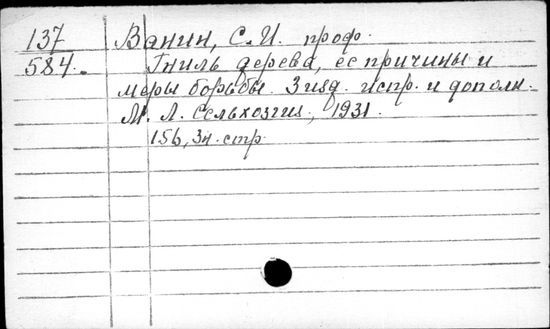 137 Ванин, С.И. проф.
584. Гниль дерева, ее причины и
меры борьбы. 3 изд. испр. и дополн.
М. Л. Сельхозгиз, 1931.
156, 3н. стр